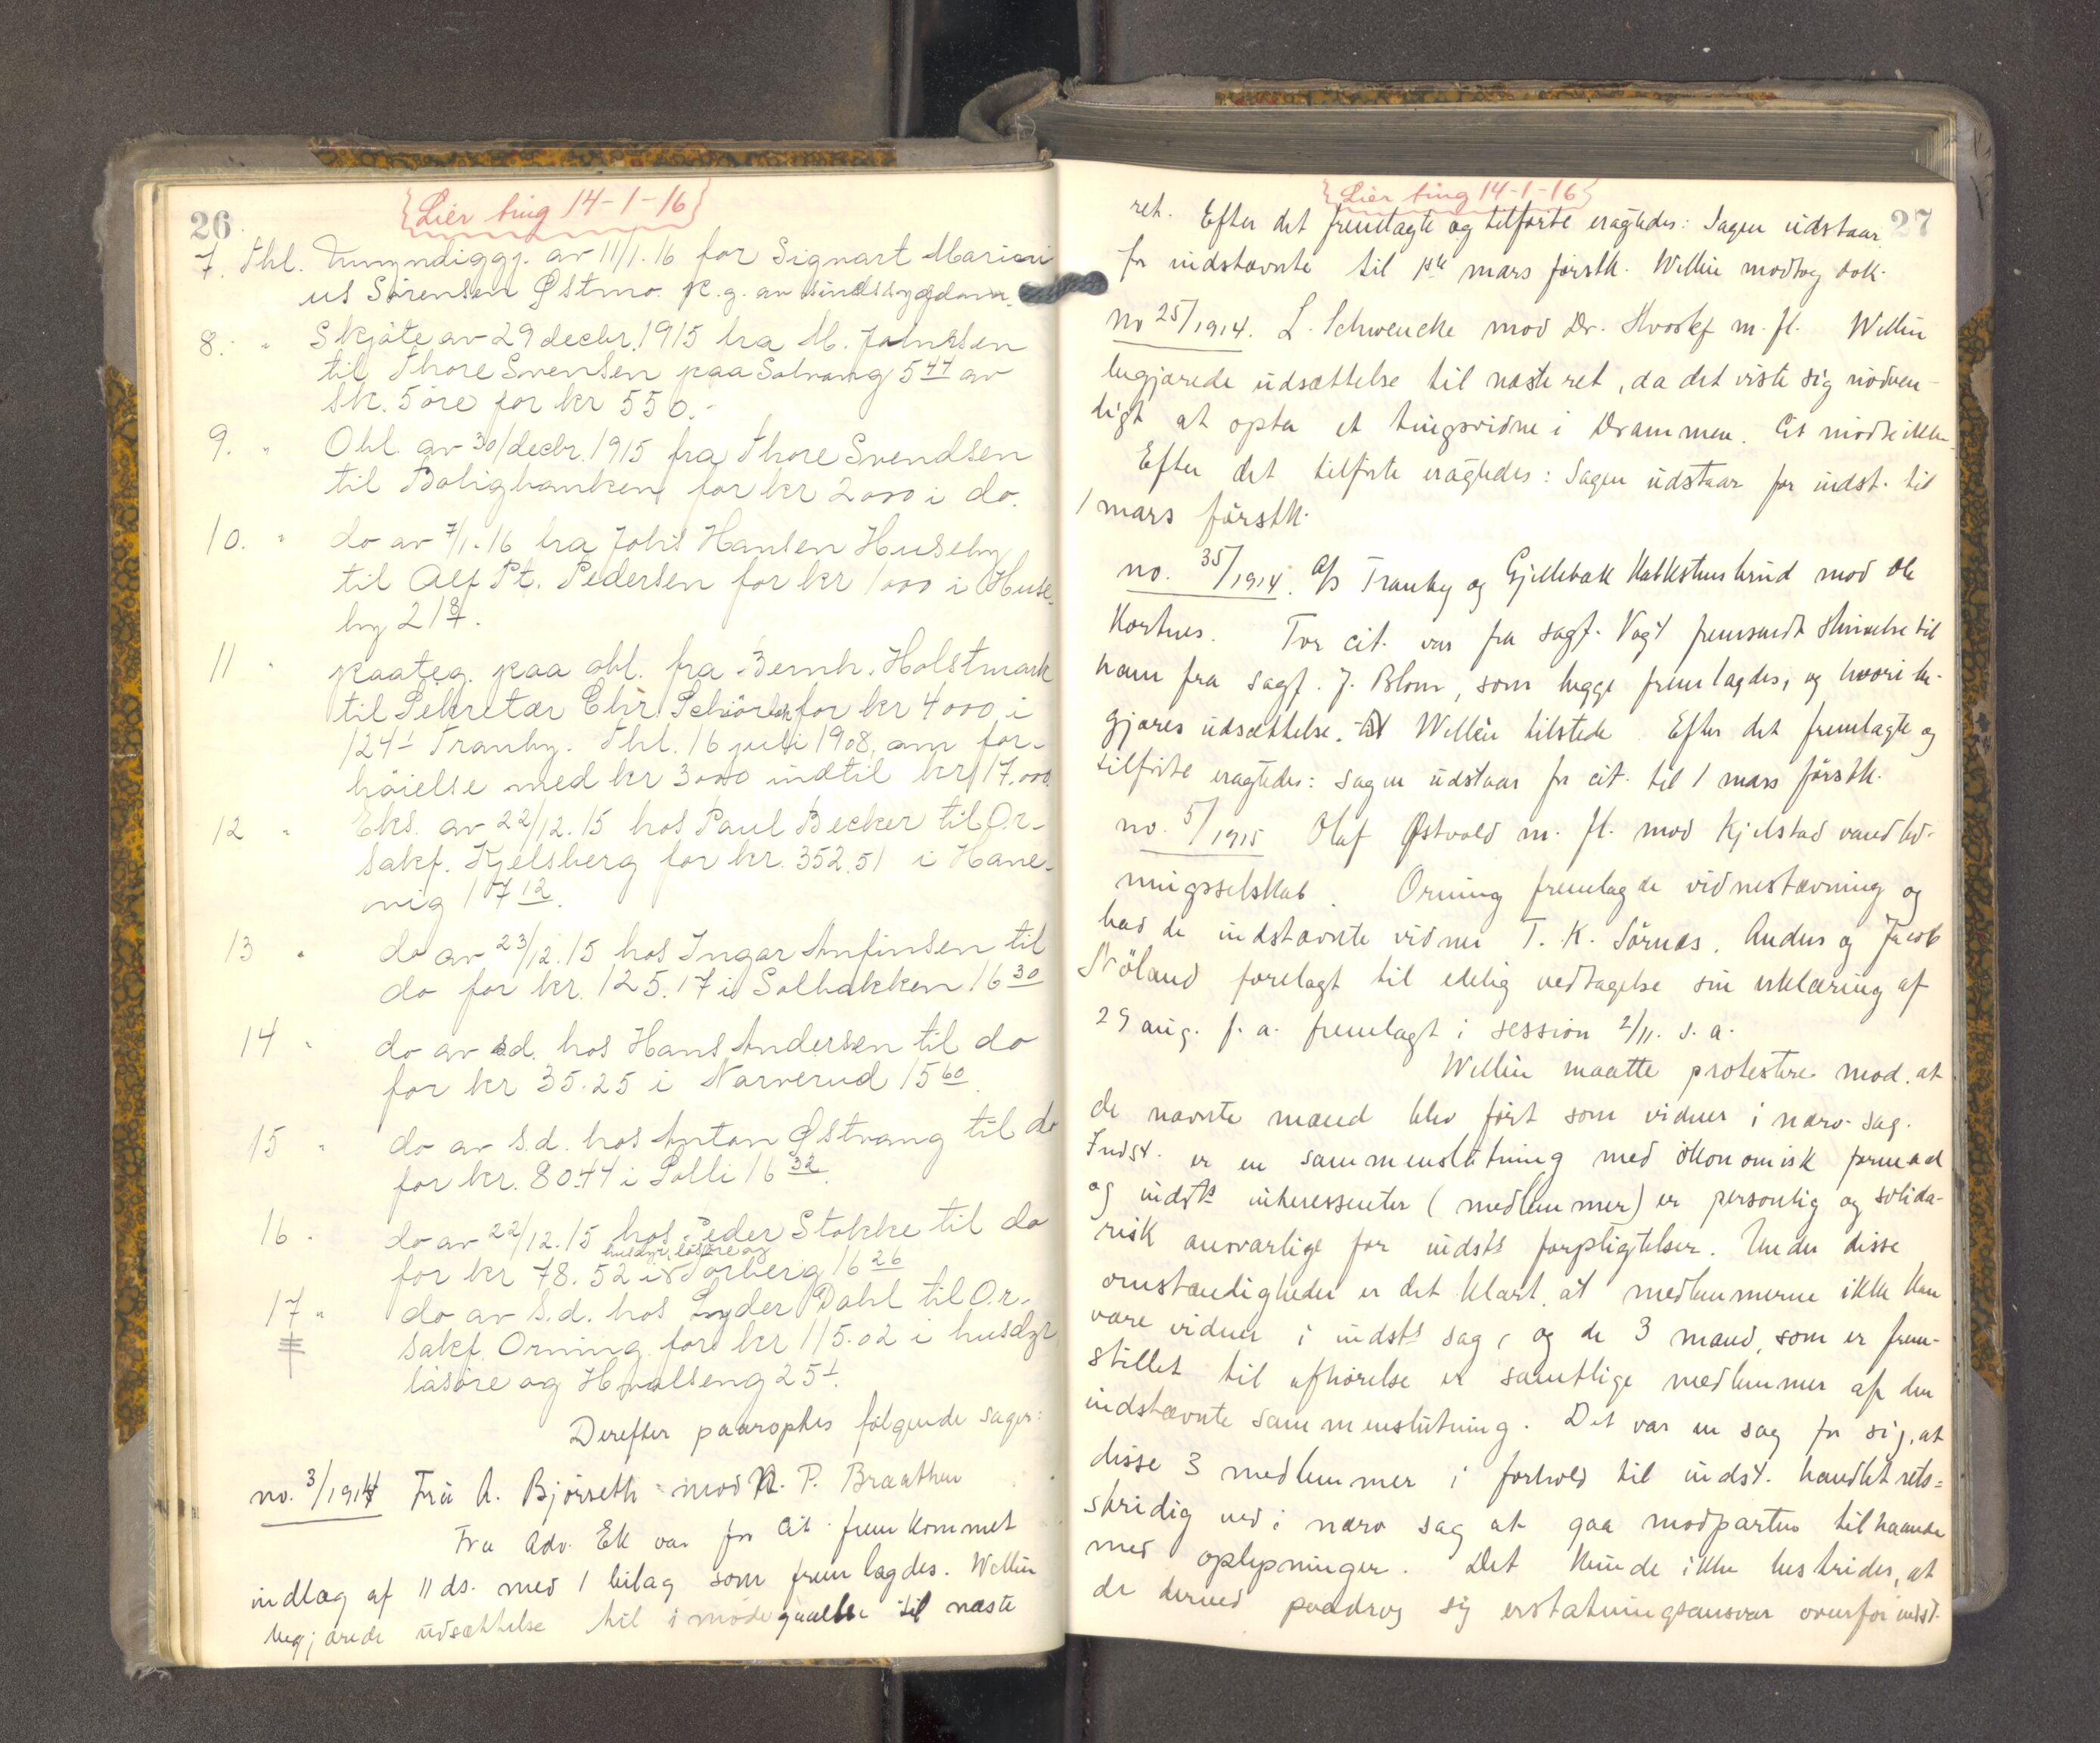 26
Lier ting 14-1-16
7. Thl. Umyndiggj. av 11/1.16 for Signart Marini
us Sörensen Østmo p.g. av sindssygdom.
8. " Skjöte av 29 decbr. 1915 fra M. Johnsen
til Thore Svensen paa Solvang 5 44 av
sk. 5 öre for kr 550.-
9. " Obl. av 30/decbr. 1915 fra Thore Svendsen
til Boligbanken for kr 2000 i do.
10. " do av 7/1-16 fra Johs Hansen Huseby
til Alf Pt. Pedersen for kr 1000 i Huse-
by 21 8/7.
11 " paateg. paa obl. fra Bernh. Holstmark
til Sekretær Chr. for kr 4000 i
124 1 Tranby. Thl. 16 juli 1908, om for-
höielse med kr 3000 indtil kr 17.000
12 " Eks. av 22/12.15 hos Paul Becker til O.r-
sakf. Kjelsberg for kr. 352.51 i Hane-
vig 107 12.
13 " do av 23/12.15 hos Ingar Anfinsen til
do for kr. 125.17 i Solbakken 16 30
14 " do av sd. hos Hans Andersen til do
for kr 35.25 i Narverud 15 60.
15 " do av s.d. hos Anton Østvang til do
for kr. 80.44 i Solli 16 32.
16 " do av 22/12.15 hos Peder Stokke til do
husdyr, lösöre og
for kr 78.52 i Torberg 16 26
17 " do av s.d. hos Lyder Dahl til O.r-
sakf. Orning for kr 115.02 i husdyr
lösöre og Hvalseng 25 1.
Derefter paaroptes fölgende sager:
no. 3/1914 Fru A. Björseth mod N. P. Braathen
Fra Adv. Ek var for Cit. fremkommet
indlæg af 11 ds. med 1 bilag som fremlagdes. Wellin
begjærede udsættelse til imødegaaelse til næste
27
Lier ting 14-1-16
ret. Efter det fremlagte og tilførte eragtedes: Sagen udstaar
for indstævnte til 1ste mars førstk. Wellin modtog dok.
No 25/1914. L. Schwencke mod Dr. Hvoslef m. fl. Wellin
begjærede udsættelse til næste ret, da det viste sig nødven-
digt at opta et tingsvidne i Drammen. Cit mødte ikke
Efter det tilførte eragtedes: Sagen udstaar for indst. til
1 mars førstk.
no. 35/1914. A/s Tranby og Gjellebæk Kalkstensbrud mod Ole
Kortnes. For cit. var fra sagf. Vogt fremsendt skrivelse til
ham fra sagf. J. Blom, som begge fremlagdes, og hvori be-
gjæres udsættelse. Wellin tilstede. Efter det fremlagte og
tilførte eragtedes: Sagen udstaar for cit. til 1 mars førstk.
no. 5/1915 Olaf Østvold m. fl. mod Kjelstad vandled-
ningsselskab. Orning fremlagde vidnestævning og
bad de indstævnte vidner T. K. Sörnes, Anders og Jacob
Nöland forelagt til edelig vedtagelse sin erklæring af
29 aug. f. a. fremlagt i session 2/11. s. a.
Wellin maatte protestere mod, at
de nævnte mænd blev ført som vidner i nærv. sag.
Indst. er en sammenslutning med økonomisk formaal
og indsts interessenter (medlemmer) er personlig og solida-
risk ansvarlige for indsts forpligtelser. Under disse
omstændigheder er det klart, at medlemmerne ikke kan
være vidner i indsts sag, og de 3 mænd, som er frem-
stillet til afhørelse er samtlige medlemmer af den
indstævnte sammenslutning. Det var en sag for sig, at
disse 3 medlemmer i forhold til indst. handlet rets-
stridig ved i nærv sag at gaa modparten tilhaande
med oplysninger. Det kunde ikke bestrides, at
de derved paadrog sig erstatningsansvar overfor indst.